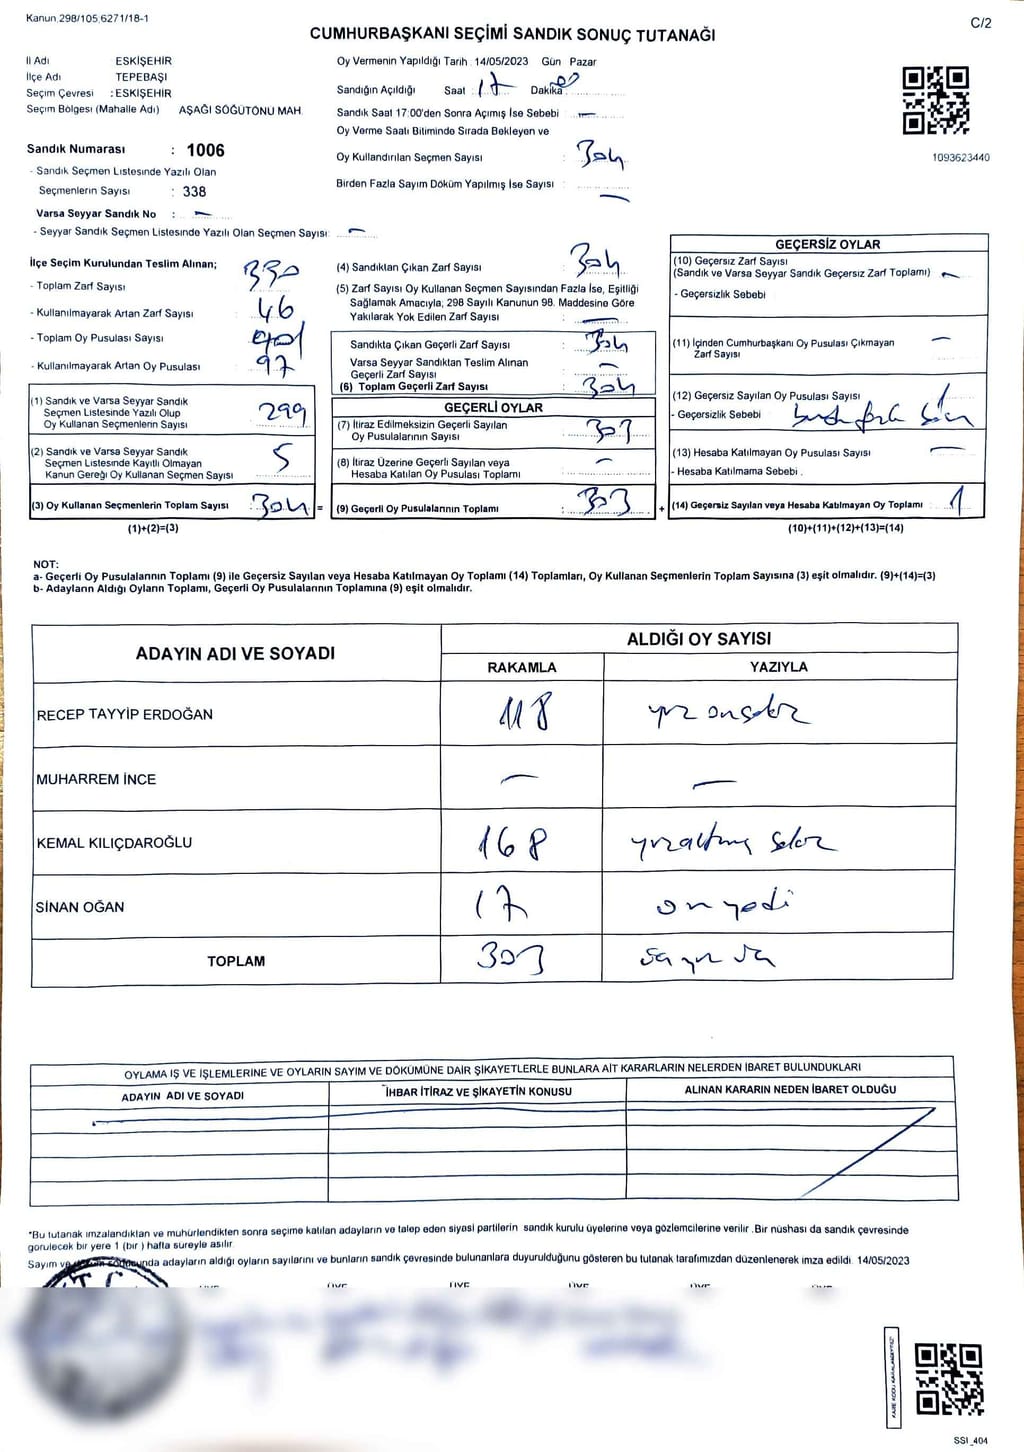 Kanun 298/105,6271/18-1
C/2
CUMHURBAŞKANI SEÇİMİ SANDIK SONUÇ TUTANAĞI
İl Adı ESKİŞEHİR
İlçe Adı TEPEBAŞI
Seçim Çevresi : ESKİŞEHİR
Seçim Bölgesi (Mahalle Adı) AŞAĞI SÖĞÜTÖNÜ MAH.
Sandık Numarası : 1006
- Sandık Seçmen Listesinde Yazılı Olan
Seçmenlerin Sayısı : 338
Varsa Seyyar Sandık No : -
- Seyyar Sandık Seçmen Listesinde Yazılı Olan Seçmen Sayısı: -
Oy Vermenin Yapıldığı Tarih 14/05/2023 Gün Pazar
Sandığın Açıldığı Saat : 17 Dakika : 00
Sandık Saat 17:00'den Sonra Açımış İse Sebebi : -
Oy Verme Saati Bitiminde Sırada Bekleyen ve
Oy Kullandırılan Seçmen Sayısı : 304
Birden Fazla Sayım Döküm Yapılmış İse Sayısı : -
1093623440
İlçe Seçim Kurulundan Teslim Alınan;
- Toplam Zarf Sayısı : 350
- Kullanılmayarak Artan Zarf Sayısı : 46
- Toplam Oy Pusulası Sayısı : 401
- Kullanılmayarak Artan Oy Pusulası : 97
(1) Sandık ve Varsa Seyyar Sandık
Seçmen Listesinde Yazılı Olup
Oy Kullanan Seçmenlerin Sayısı 299
(2) Sandık ve Varsa Seyyar Sandık
Seçmen Listesinde Kayıtlı Olmayan
Kanun Gereği Oy Kullanan Seçmen Sayısı 5
(3) Oy Kullanan Seçmenlerin Toplam Sayısı : 304 =
(1)+(2)=(3)
(4) Sandıktan Çıkan Zarf Sayısı : 304
(5) Zarf Sayısı Oy Kullanan Seçmen Sayısından Fazla İse, Eşitliği
Sağlamak Amacıyla, 298 Sayılı Kanunun 98. Maddesine Göre
Yakılarak Yok Edilen Zarf Sayısı : -
Sandıkta Çıkan Geçerli Zarf Sayısı : 304
Varsa Seyyar Sandıktan Teslim Alınan
Geçerli Zarf Sayısı : -
(6) Toplam Geçerli Zarf Sayısı : 304
GEÇERLİ OYLAR
(7) İtiraz Edilmeksizin Geçerli Sayılan
Oy Pusulalarının Sayısı : 303
(8) İtiraz Üzerine Geçerli Sayılan veya
Hesaba Katılan Oy Pusulası Toplamı : -
(9) Geçerli Oy Pusulalarının Toplamı : 303 +
GEÇERSİZ OYLAR
(10) Geçersiz Zarf Sayısı
(Sandık ve Varsa Seyyar Sandık Geçersiz Zarf Toplamı) -
- Geçersizlik Sebebi
(11) İçinden Cumhurbaşkanı Oy Pusulası Çıkmayan
Zarf Sayısı -
(12) Geçersiz Sayılan Oy Pusulası Sayısı 1
- Geçersizlik Sebebi
(13) Hesaba Katılmayan Oy Pusulası Sayısı -
- Hesaba Katılmama Sebebi .
(14) Geçersiz Sayılan veya Hesaba Katılmayan Oy Toplamı 1
(10)+(11)+(12)+(13)=(14)
NOT:
a- Geçerli Oy Pusulalarının Toplamı (9) ile Geçersiz Sayılan veya Hesaba Katılmayan Oy Toplamı (14) Toplamları, Oy Kullanan Seçmenlerin Toplam Sayısına (3) eşit olmalıdır. (9)+(14)=(3)
b- Adayların Aldığı Oyların Toplamı, Geçerli Oy Pusulalarının Toplamına (9) eşit olmalıdır.
ADAYIN ADI VE SOYADI ALDIĞI OY SAYISI
RAKAMLA YAZIYLA
RECEP TAYYİP ERDOĞAN 118 yüz onsekiz
MUHARREM İNCE - -
KEMAL KILIÇDAROĞLU 168 yüzaltmış sekiz
SİNAN OĞAN 17 on yedi
TOPLAM 303
OYLAMA İŞ VE İŞLEMLERİNE VE OYLARIN SAYIM VE DÖKÜMÜNE DAİR ŞİKAYETLERLE BUNLARA AİT KARARLARIN NELERDEN İBARET BULUNDUKLARI
ADAYIN ADI VE SOYADI İHBAR İTİRAZ VE ŞİKAYETİN KONUSU ALINAN KARARIN NEDEN İBARET OLDUĞU
*Bu tutanak imzalandıktan ve mühürlendikten sonra seçime katılan adayların ve talep eden siyasi partilerin sandık kurulu üyelerine veya gözlemcilerine verilir .Bir nüshası da sandık çevresinde
görülecek bir yere 1 (bir ) hafta süreyle asılır
Sayım ve döküm sonucunda adayların aldığı oyların sayılarını ve bunların sandık çevresinde bulunanlara duyurulduğunu gösteren bu tutanak tarafımızdan düzenlenerek imza edildi. 14/05/2023
SSI_404